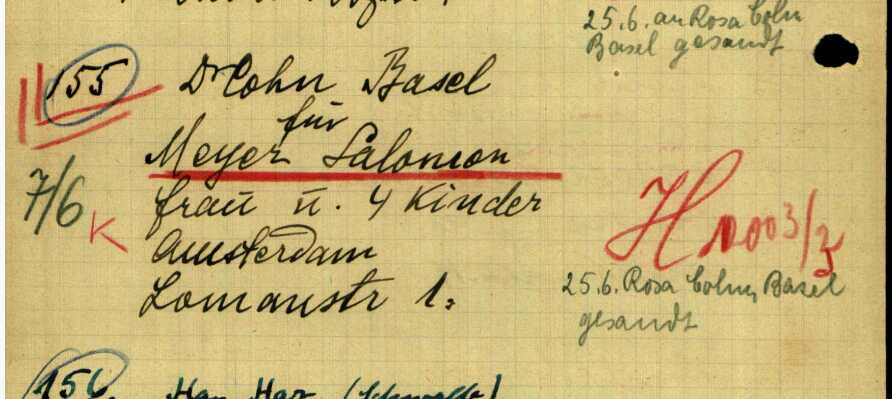 25.6. an Rosa Cohn
Basel gesandt
155 Dr Cohn Basel
für
Meyer Salomon
7/6 K frau u. 4 Kinder
Amsterdam
Lomanstr 1.
H 1003/3
25.6. Rosa Cohn, Basel
gesandt
156.